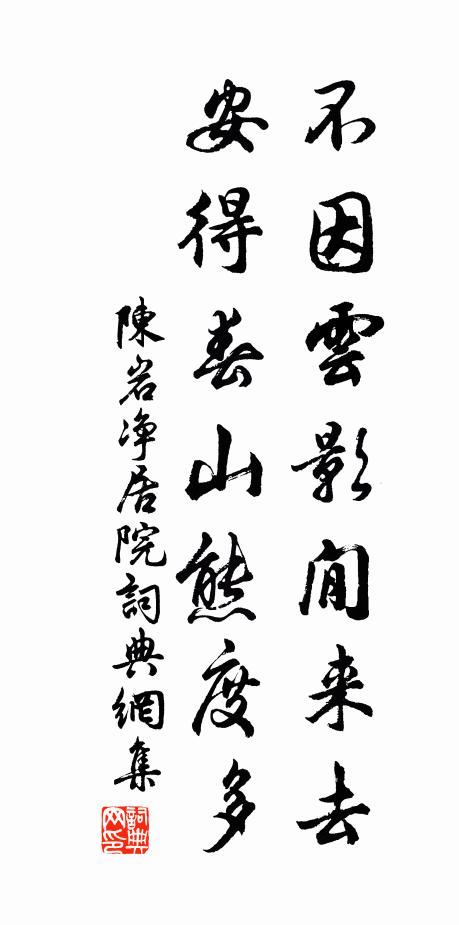 不因雲影閒来去
安得春山態度多
陳岩净居院詞典網集
詞典网印